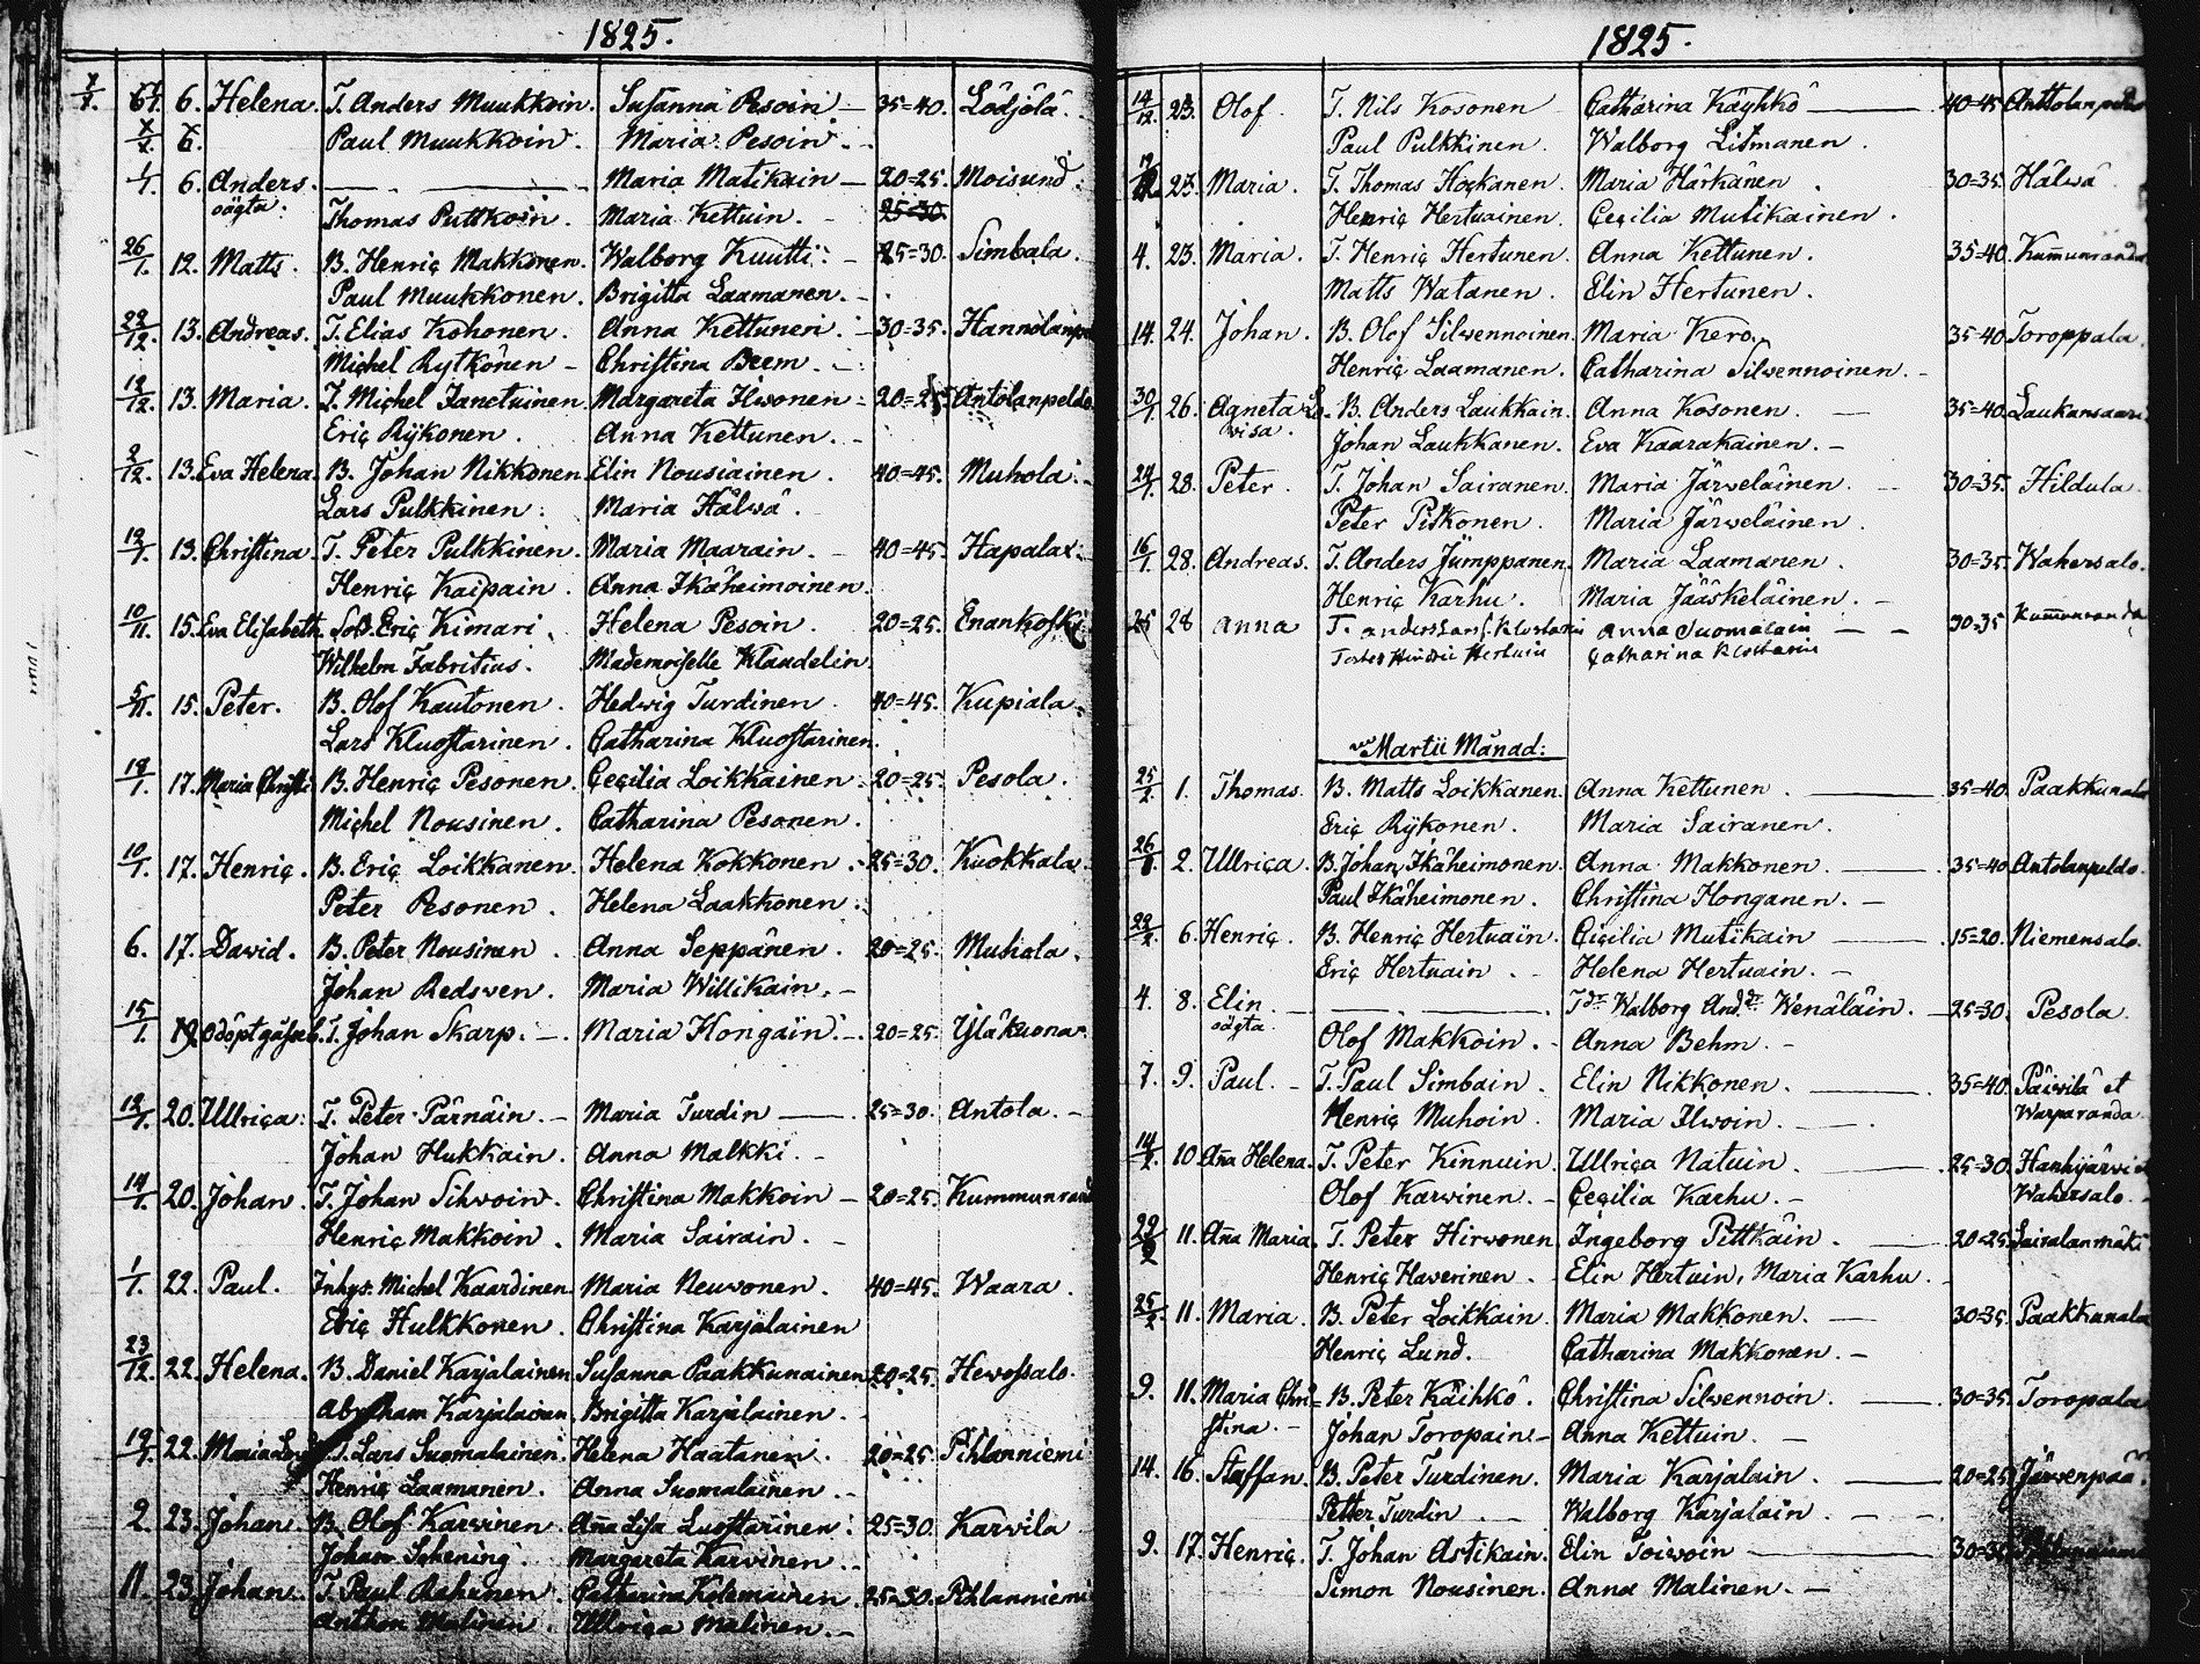 1825.
6. Helena. T. Anders Muukkoin. Susanna Pesoin 35=40. Lödjölä.
Paul Muukkoin. Maria Pesoin.
1/1. 6. Anders. Maria Matikain 20=25. Moisund
oägta. Thomas Puttkoin. Maria Kettuin. 25=30.
26/1. 12. Matts. B. Henriç Makkonen. Walborg Kuutti. 25=30. Simbala.
Paul Muukkonen. Brigitta Laamanen.
22/12. 13. Andreas. T. Elias Kohonen. Anna Kettunen. 30=35.
Michel Rytkönen Christina Beem.
12/12. 13. Maria. T. Michel Janctuinen. Margareta Ilwonen 20=25. Antolanpeldo
Eriç Rÿkonen. Anna Kettunen.
2/12. 13. Eva Helena. B. Johan Nikkonen. Elin Nousiainen. 40=45. Muhola.
Lars Pulkkinen. Maria Hälwä.
12/1. 13. Christina. T. Peter Pulkkinen. Maria Maarain. 40=45. Hapalax.
Henriç Kaipain. Anna Ikäheimoinen.
10/11. 15. Eva Elisabeth. Eriç Kimari. Helena Pesoin. 20=25. Enankoski
Wilhelm Fabritius. Mademoiselle Klandelin.
5/11. 15. Peter. B. Olof Kautonen. Hedwig Turdinen. 40=45. Kupiala.
Lars Kluostarinen. Catharina Kluostarinen.
18/1. 17. Maria Christi B. Henriç Pesonen. Ceçilia Loikkainen. 20=25. Pesola.
Michel Nousinen. Catharina Pesonen.
10/1. 17. Henriç. B. Eriç Loikkanen. Helena Kokkonen. 25=30. Kuokkala.
Peter Pesonen. Helena Laakkonen.
6. 17. David. B. Peter Nousinen. Anna Seppänen. 20=25. Muhola.
Johan Redswen. Maria Willikain.
15/1. 19. Odöpt T. Johan Skarp. Maria Hongain. 20=25. Yläkuona.
12/1. 20. Ullriça. T. Peter Pärnäin. Maria Turdin 25=30. Antola.
Johan Hukkain. Anna Malkki.
14/1. 20. Johan. T. Johan Sihwoin. Christina Makkoin 20=25. Kummunrand
Henriç Makkoin. Maria Sairain.
1/1. 22. Paul. Inhys. Michel Kaardinen. Maria Neuwonen. 40=45. Waara.
Eriç Hulkkonen. Christina Karjalainen
23/12. 22. Helena. B. Daniel Karjalainen. Susanna Paakkunainen 20=25. Hewossalo.
Abraham Karjalainen. Brigitta Karjalainen.
19/1. 22. Maria T. Lars Suomalainen. Helena Haatanen. 20=25. Pihlanniemi
Henriç Laamanen. Anna Suomalainen.
2. 23. Johan. B. Olof Karwinen. Añna Lisa Luostarinen. 25=30. Karwila
Johan Schening. Margareta Karwinen.
11. 23. Johan. T. Paul Rahunen. Catharina Kolemainen. 25=30. Pihlanniemi
Anthon Malinen. Ullriça Malinen.
1825.
14/12. 23. Olof. T. Nils Kosonen Catharina Käyhkö 40=45
Paul Pulkkinen. Walborg Litmanen.
23. Maria. T. Thomas Hockanen. Maria Härkänen. 30=35. Hälwä
Henriç Hertuainen. Ceçilia Mutikainen.
4. 23. Maria. T. Henriç Hertunen. Anna Kettunen. 35=40. Kum̄unranda
Matts Watanen. Elin Hertunen.
14. 24. Johan. B. Olof Silwennoinen. Maria Kero. 35=40. Toroppala.
Henriç Laamanen. Catharina Silwennoinen.
30/1. 26. Agneta Lo- B. Anders Laukkain. Anna Kosonen. 35=40. Laukansaari
wisa. Johan Laukkanen. Eva Kaarakainen.
24/1. 28. Peter. T. Johan Sairanen. Maria Järweläinen. 30=35. Hildula.
Peter Pitkonen. Maria Järweläinen.
16/1. 28. Andreas. T. Anders Jumppanen. Maria Laamanen. 30=35. Wahersalo.
Henriç Karhu. Maria Jääskeläinen.
25 28 Anna T. Anders Anna Suomalain 30=35 Kum̄unranda
Hertuin Catharina
Martii Månad:
25/2. 1. Thomas. B. Matts Loikkanen. Anna Kettunen. 35=40. Paakkunala
Eriç Rÿkonen. Maria Sairanen.
26/ 2. Ullriça. B. Johan Ikäheimonen. Anna Makkonen. 35=40. Antolanpeldo.
Paul Ikäheimonen. Christina Honganen.
22/2. 6. Henriç. B. Henriç Hertuain. Ciçilia Mutikain 15=20. Niemensalo.
Eriç Hertuain. Helena Hertuain.
4. 8. Elin Tdr Walborg And.dr Wenäläin. 25=30. Pesola.
oägta. Olof Makkoin. Anna Behm.
7. 9. Paul. T. Paul Simbain. Elin Nikkonen. 35=40. Päiwilä et
Henriç Muhoin. Maria Ilwoin. Warparanda
14/2. 10. Añna Helena. T. Peter Kinnuin. Ullriça Natuin. 25=30. Hanhijärwi
Olof Karwinen. Ceçilia Karhu. Wahersalo.
22/2 11. Añna Maria. T. Peter Hirwonen. Ingeborg Pittkäin. 20=25. Sairalanmäki
Henriç Hawerinen. Elin Hertuin, Maria Karhu.
25/2. 11. Maria. B. Peter Loikkain. Maria Makkonen. 30=35. Paakkunala
Henriç Lund. Catharina Makkonen.
9. 11. Maria Chri= B. Peter Käihkö. Christina Silwennoin. 30=35. Toropala
stina. Johan Toropain. Anna Kettuin.
14. 16. Staffan. B. Peter Turdinen. Maria Karjalain. 20=25. Järwenpää.
Petter Turdin Walborg Karjalain.
9. 17. Henriç. T. Johan Astikain. Elin Toiwoin
Simon Nousinen. Anna Malinen.